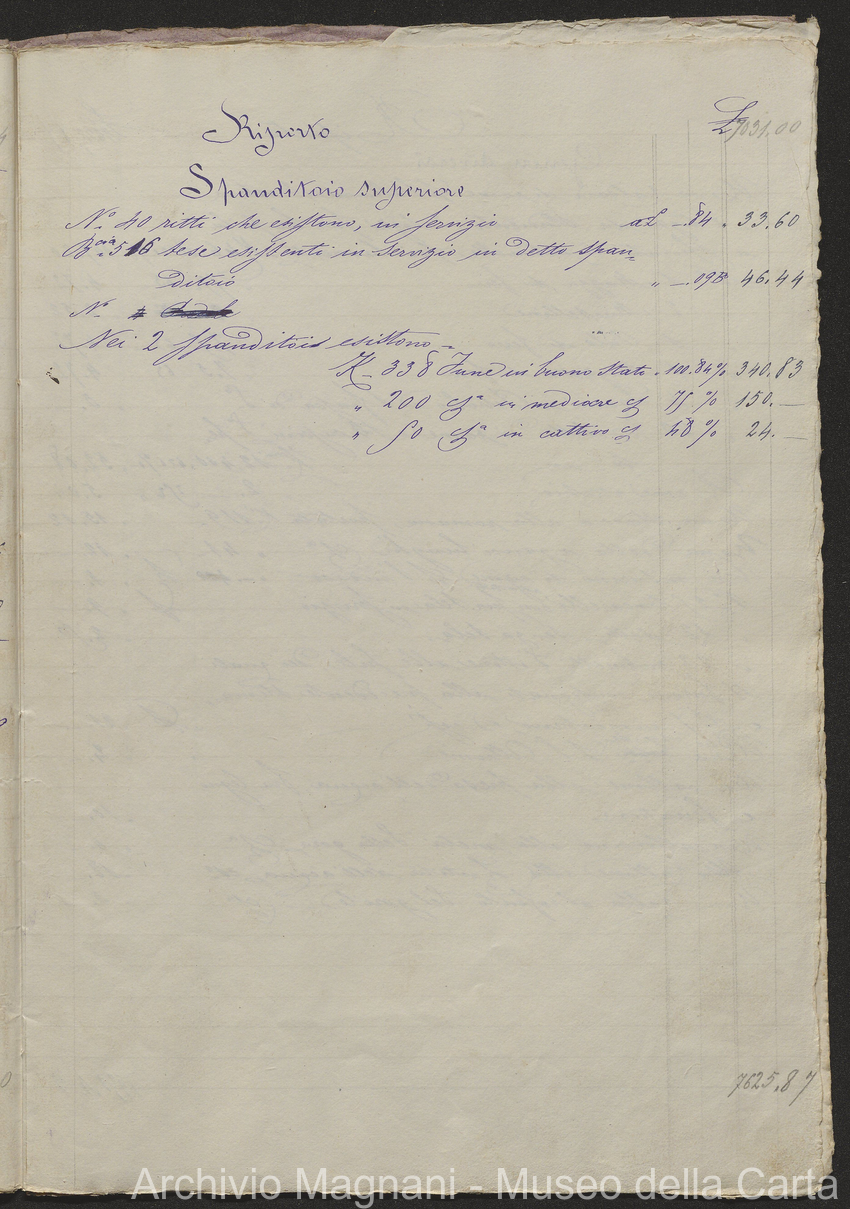 Riporto £ 7031.00
Spanditoio superiore
N.o 40 ritti che esistono, in servizio a £ -.84 " 33.60
516 tese esistenti in servizio in detto span=
ditoio " -.09 46.44
N.o
Nei 2 spanditoi esistono -
K. 338 Fune in buono stato " 100.84 % 340.83
" 200 in mediocre 75 % 150.—
" 50 in cattivo 48 % 24.—
7625.87
Archivio Magnani - Museo della Carta